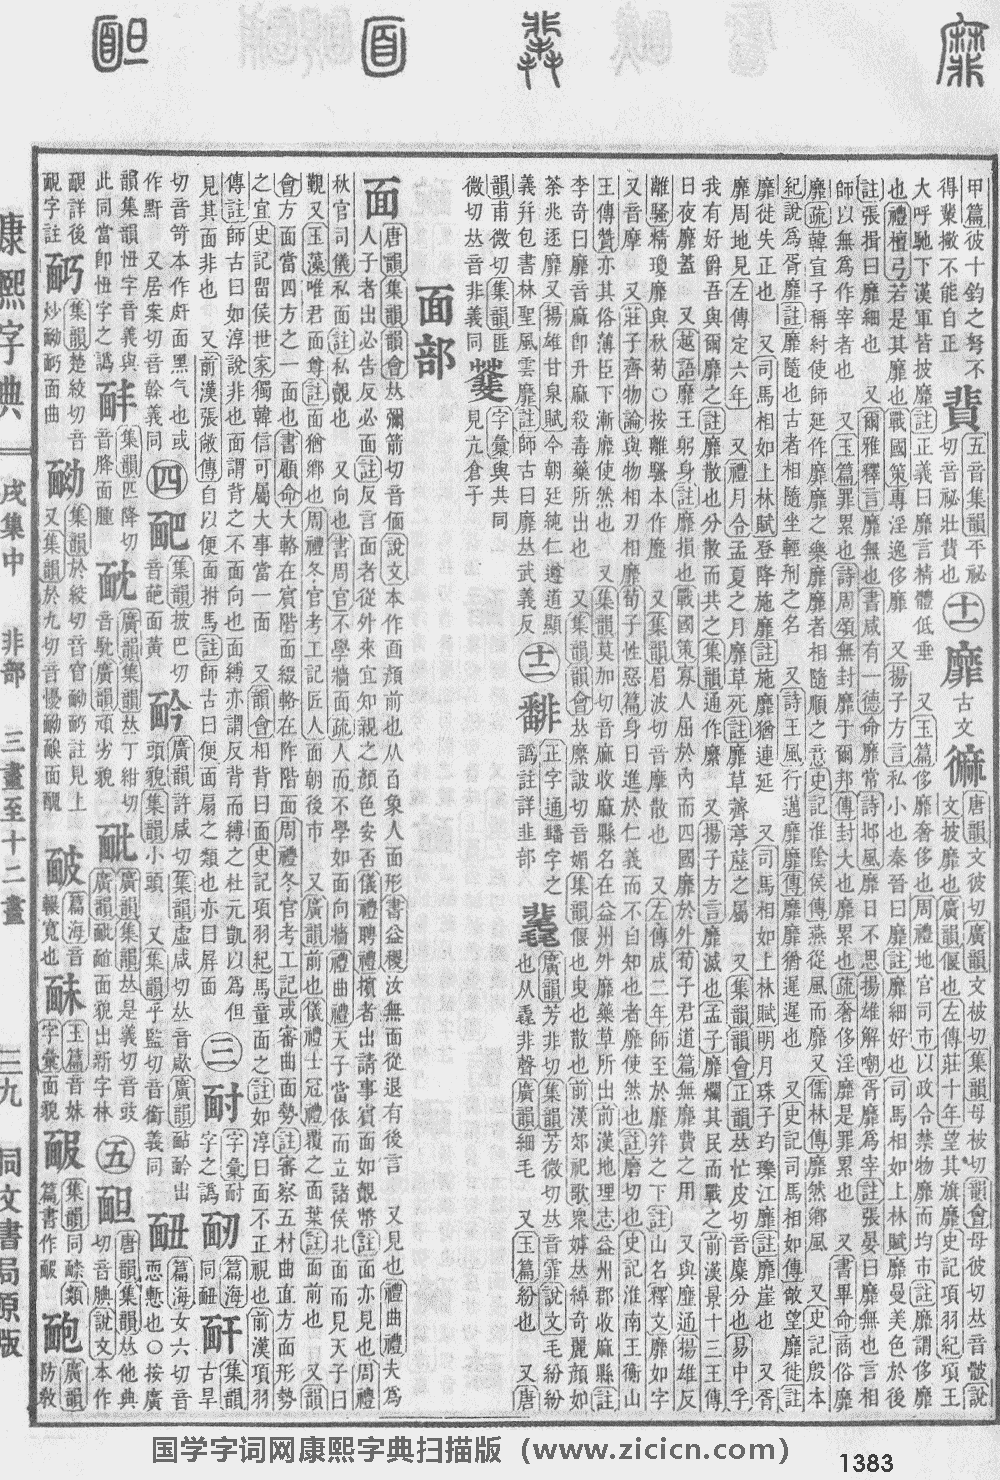 甲篇彼十鈞之弩不
得輩撇不能自正
五音集韻平祕
切音祕壯賁也
十一
靡
古文
唐韻文彼切廣韻文被切集韻母被切韻會母彼切𠀤音骳說
文披靡也廣韻偃也左傳莊十年望其旗靡史記項羽紀項王
大呼馳下漢軍皆披靡註正義曰靡言精體低垂 又玉篇侈靡奢侈也周禮地官司市以政令禁物靡而均市註靡謂侈靡
也禮檀弓若是其靡也戰國策專淫逸侈靡 又揚子方言私小也秦晉曰靡註靡細好也司馬相如上林賦靡曼美色於後
註張揖曰靡細也 又爾雅釋言靡無也書咸有一德命靡常詩邶風靡日不思揚雄解嘲胥靡為宰註張晏曰靡無也言相
師以無為作宰者也 又玉篇罪累也詩周頌無封靡于爾邦傳封大也靡累也疏奢侈淫靡是罪累也 又書畢命商俗靡
靡疏韓宣子稱紂使師延作靡靡之樂靡靡者相隨順之意史記淮陰侯傳燕從風而靡又儒林傳靡然鄉風 又史記殷本
紀說為胥靡註靡隨也古者相隨坐輕刑之名 又詩王風行邁靡靡傳靡靡猶遲遲也 又史記司馬相如傳敞望靡徙註
靡徙失正也 又司馬相如上林賦登降施靡註施靡猶連延 又司馬相如上林賦明月珠子玓瓅江靡註靡崖也 又胥
靡周地見左傳定六年 又禮月令孟夏之月靡草死註靡草薺葶藶之屬 又集韻韻會正韻𠀤忙皮切音糜分也易中孚
我有好爵吾與爾靡之註靡散也分散而共之集韻通作縻 又揚子方言靡滅也孟子靡爛其民而戰之前漢景十三王傳
日夜靡蓋 又越語靡王躬身註靡損也戰國策寡人屈於內而四國靡於外荀子君道篇無靡費之用 又與䕷通揚雄反
離騷精瓊靡與秋菊○按離騷本作爢 又集韻眉波切音摩散也 又左傳成二年師至於靡筓之下註山名釋文靡如字
又音摩 又莊子齊物論與物相刃相靡荀子性惡篇身日進於仁義而不自知也者靡使然也註磨切也史記淮南王衡山
王傳贊亦其俗薄臣下漸靡使然也 又集韻莫加切音麻收靡縣名在益州外靡藥草所出前漢地理志益州郡收靡縣註
李奇曰靡音麻卽升麻殺毒藥所出也 又集韻韻會𠀤縻詖切音媚集韻偃也曳也散也前漢郊祀歌衆嫭𠀤綽奇麗顏如
荼兆逐靡又揚雄甘泉賦今朝廷純仁遵道顯
義幷包書林聖風雲靡註師古曰靡𠀤武義反
十二
正字通䊩字之
譌註詳韭部
廣韻芳非切集韻芳微切𠀤音霏說文毛紛紛
也从毳非聲廣韻細毛 又玉篇紛也 又唐
韻甫微切集韻匪
微切𠀤音非義同
字彙與共同
見亢倉子
面部
面
唐韻集韻韻會𠀤彌箭切音偭說文本作𠚑顏前也从𦣻象人面形書益稷汝無面從退有後言 又見也禮曲禮夫為
人子者出必告反必面註反言面者從外來宜知親之顏色安否儀禮聘禮擯者出請事賓面如覿幣註面亦見也周禮
秋官司儀私面註私覿也 又向也書周官不學牆面疏人而不學如面向牆禮曲禮天子當依而立諸侯北面而見天子曰
覲又玉藻唯君面尊註面猶鄉也周禮冬官考工記匠人面朝後市 又廣韻前也儀禮士冠禮覆之面葉註面前也 又韻
會方面當四方之一面也書顧命大輅在賓階面綴輅在阼階面周禮冬官考工記或審曲面勢註審察五材曲直方面形勢
之宜史記留侯世家獨韓信可屬大事當一面 又韻會相背曰面史記項羽紀馬童面之註如淳曰面不正視也前漢項羽
傳註師古曰如淳說非也面謂背之不面向也面縛亦謂反背而縛之杜元凱以為但
見其面非也 又前漢張敞傳自以便面拊馬註師古曰便面扇之類也亦曰屛面
三
耐
字彙耐
字之譌
篇海
同䩄
集韻
古旱
切音笴本作皯面黑气也或
作䵟 又居案切音幹義同
四
集韻披巴切
音葩面黃
廣韻許咸切集韻虛咸切𠀤音歁廣韻䩑䩂出
頭貌集韻小頭 又集韻乎監切音銜義同
篇海女六切音
恧慙也○按廣
韻集韻忸字音義與
此同當卽忸字之譌
集韻匹降切
音胮面腫
廣韻集韻𠀤丁紺切
音馾廣韻頑劣貌
廣韻集韻𠀤是義切音豉
廣韻䩃䩅面貌出新字林
五
唐韻集韻𠀤他典
切音腆說文本作
靦詳後
靦字註
集韻楚絞切音
炒䩌䩏面曲
集韻於絞切音窅䩌䩏註見上
又集韻於九切音懮䩌䤅面醜
篇海音
報寬也
玉篇音妹
字彙面貌
集韻同酦類
篇書作䤖
廣韻
防敎
康熙字典
戌集中
非部
三畫至十二畫
三九
同文書局原版
国学字词网康熙字典扫描版（www.zicicn.com）
1383